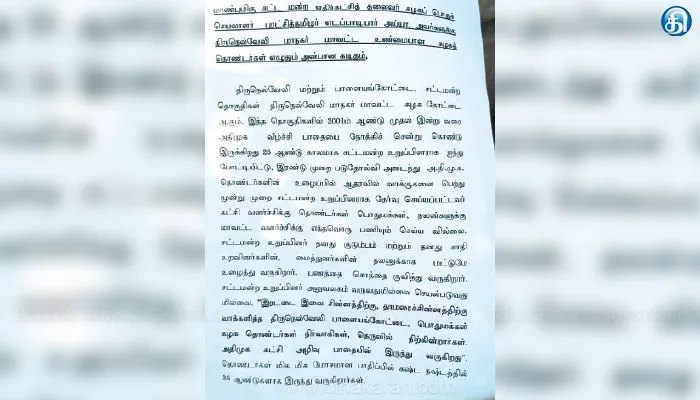 மாண்புமிகு சட்ட மன்ற எதிர்கட்சித் தலைவர் கழகப் பொதுச்
செயலாளர் புரட்சித்தமிழர் எடப்பாடியார் அய்யா, அவர்களுக்கு
திருநெல்வேலி மாநகர் மாவட்ட உண்மையான கழகத்
தொண்டர்கள் எழுதும் அன்பான கடிதம்,
திருநெல்வேலி மற்றும் பாளையங்கோட்டை, சட்டமன்ற
தொகுதிகள் திருநெல்வேலி மாநகர் மாவட்ட கழக கோட்டை
ஆகும். இந்த தொகுதிகளில் 2001ம் ஆண்டு முதல் இன்று வரை
அதிமுக வீழ்ச்சி பாதையை நோக்கிச் சென்று கொண்டு
இருக்கிறது 25 ஆண்டு காலமாக சட்டமன்ற உறுப்பினராக ஐந்து
போட்டியிட்டு, இரண்டு முறை படுதோல்வி அடைந்து அ.தி.மு.க.
தொண்டர்களின் உழைப்பில் ஆதரவில் வாக்குகளை பெற்று
மூன்று முறை சட்டமன்ற உறுப்பினராக தேர்வு செய்யப்பட்டவர்
கட்சி வளர்ச்சிக்கு தொண்டர்கள் பொதுமக்கள், நலன்களுக்கு
மாவட்ட வளர்ச்சிக்கு எந்தவொரு பணியும் செய்ய வில்லை.
சட்டமன்ற உறுப்பினர் தனது குடும்பம் மற்றும் தனது சாதி
உறவினர்களின், மைத்துனர்களின் நலனுக்காக மட்டுமே
உழைத்து வருகிறார். பணத்தை சொத்தை குவித்து வருகிறார்.
சட்டமன்ற உறுப்பினர் அலுவலகம் வருவதுமில்லை செயல்படுவது
மில்லை. "இரட்டை இலை சின்னத்திற்கு, தாமரைச்சின்னத்திற்கு
வாக்களித்த திருநெல்வேலி பாளையங்கோட்டை, பொதுமக்கள்
கழக தொண்டர்கள் நிர்வாகிகள், தெருவில் நிற்கின்றார்கள்.
அதிமுக கட்சி அழிவு பாதையில் இருந்து வருகிறது".
தொண்டர்கள் மிக மிக மோசமான பாதிப்பில் கஷ்ட நஷ்டத்தில்
25 ஆண்டுகளாக இருந்து வருகிறார்கள்.